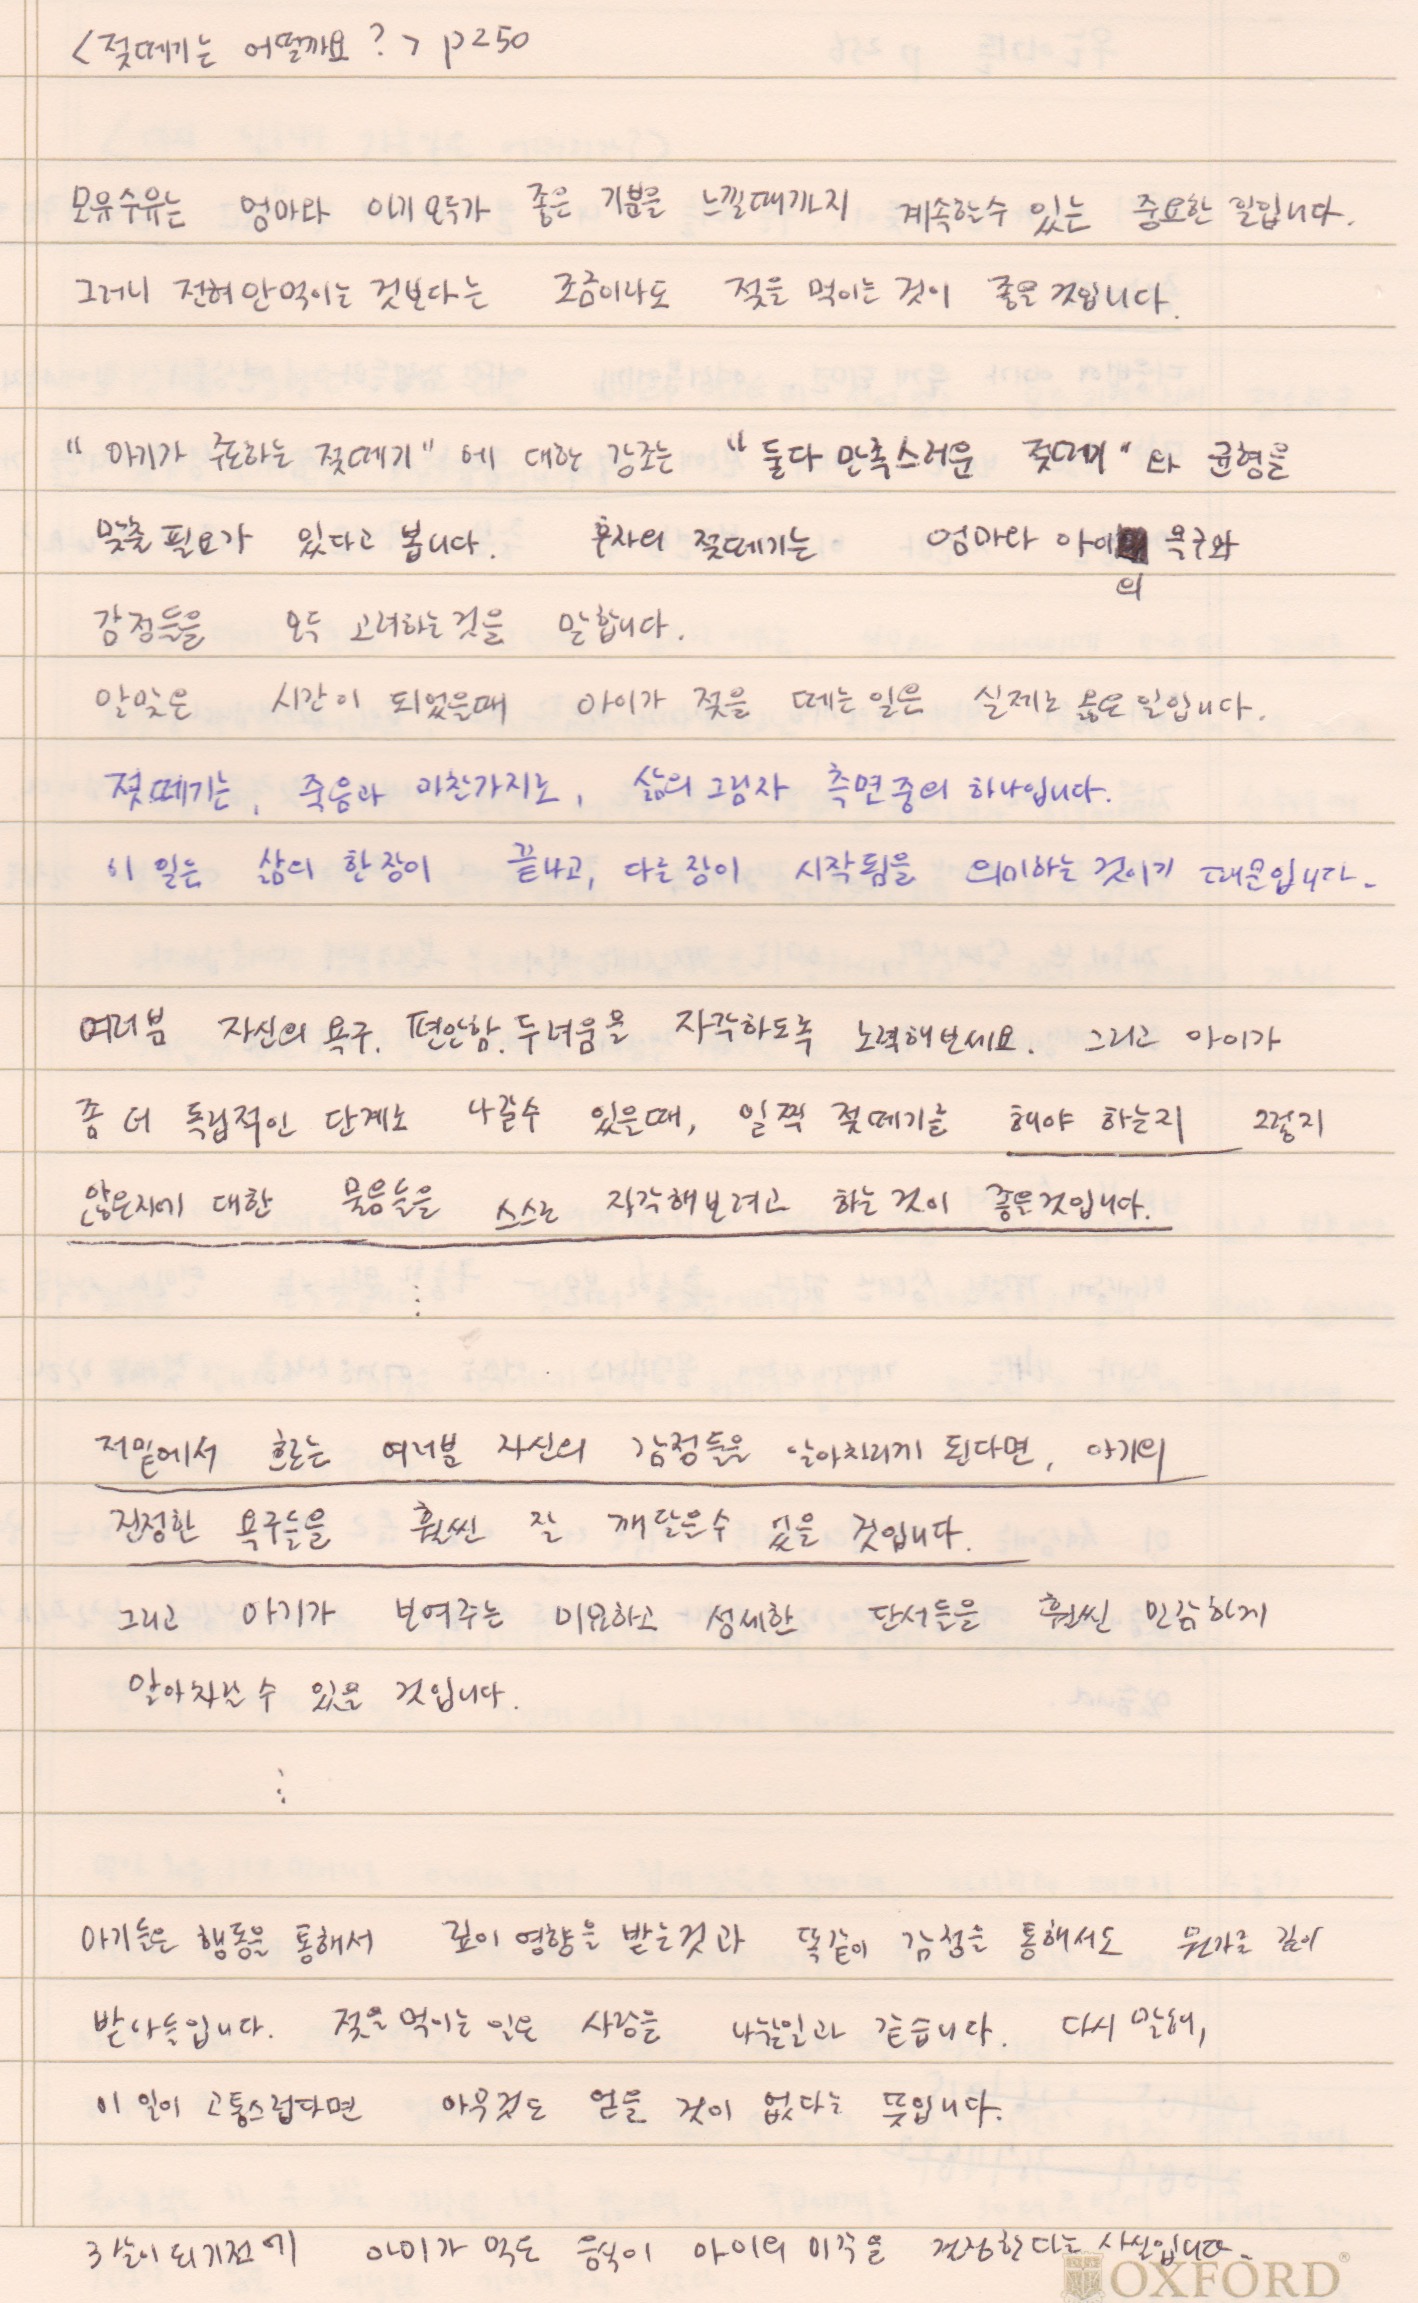 <젖떼기는 어떨까요?> p250
모유수유는 엄마와 아기 모두가 좋은 기분을 느낄때까지 계속할수 있는 중요한 일입니다.
그러니 전혀 안먹이는 것보다는 조금이나도 젖을 먹이는 것이 좋은 것입니다.
"아기가 주도하는 젖떼기"에 대한 강조는 "둘다 만족스러운 젖떼기"와 균형을
맞출 필요가 있다고 봅니다. 후자의 젖떼기는 엄마와 아이의 욕구와
감정들을 모두 고려하는것을 말합니다.
알맞은 시간이 되었을때 아이가 젖을 떼는 일은 실제로 옳은 일입니다.
젖떼기는, 죽음과 마찬가지로, 삶의 그림자 측면중의 하나입니다.
이 일은 삶의 한장이 끝나고, 다른장이 시작됨을 의미하는 것이기 때문입니다.
여러분 자신의 욕구. 편안함. 두려움을 자각하도록 노력해보세요. 그리고 아이가
좀 더 독립적인 단계로 나갈수 있을때, 일찍 젖떼기를 해야 하는지 그렇지
않은지에 대한 물음들을 스스로 자각해보려고 하는 것이 좋은것입니다.
⋮
저밑에서 흐르는 여러분 자신의 감정들을 알아차리게 된다면, 아기의
진정한 욕구들을 훨씬 잘 깨달을수 있을 것입니다.
그리고 아기가 보여주는 미묘하고 섬세한 단서들을 훨씬 민감하게
알아차릴 수 있을 것입니다.
⋮
아기들은 행동을 통해서 깊이 영향을 받는것과 똑같이 감정을 통해서도 뭔가를 깊이
받아들입니다. 젖을 먹이는 일은 사랑을 나눌일과 같습니다. 다시 말해,
이 일이 고통스럽다면 아무것도 얻을 것이 없다는 뜻입니다.
3살이 되기전에 아이가 먹는 음식이 아이의 미각을 결정한다는 사실입니다.
OXFORD®